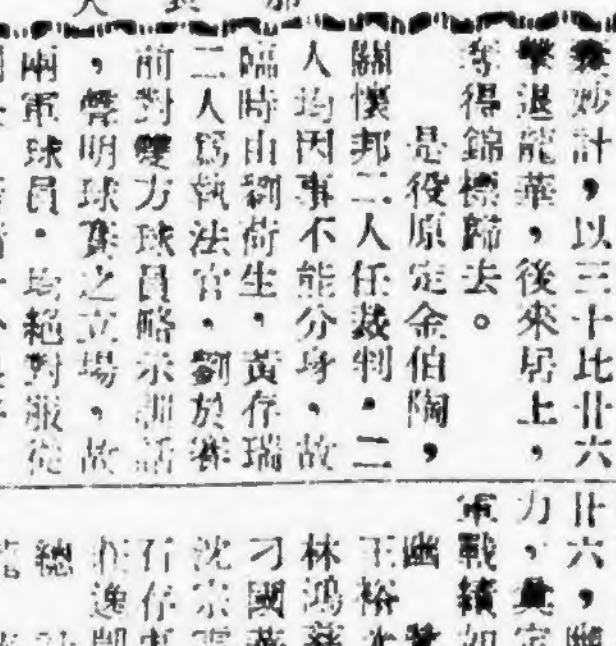 妙計，以三十比廿六
擊退龍華，後來居上，
奪得錦標歸去。
是役原定金伯陶，
關懷邦二人任裁判，二
人均因事不能分身，故
臨時由劉荷生，黃存瑞
二人爲執法官，劉於賽
前對雙方球員略示訓話
，聲明球賽之立場，故
兩軍球員，均絕對服從
廿六，
力，奠定
軍戰績如
幽
王裕
林鴻
刁國
沈宗
石存
逸
總